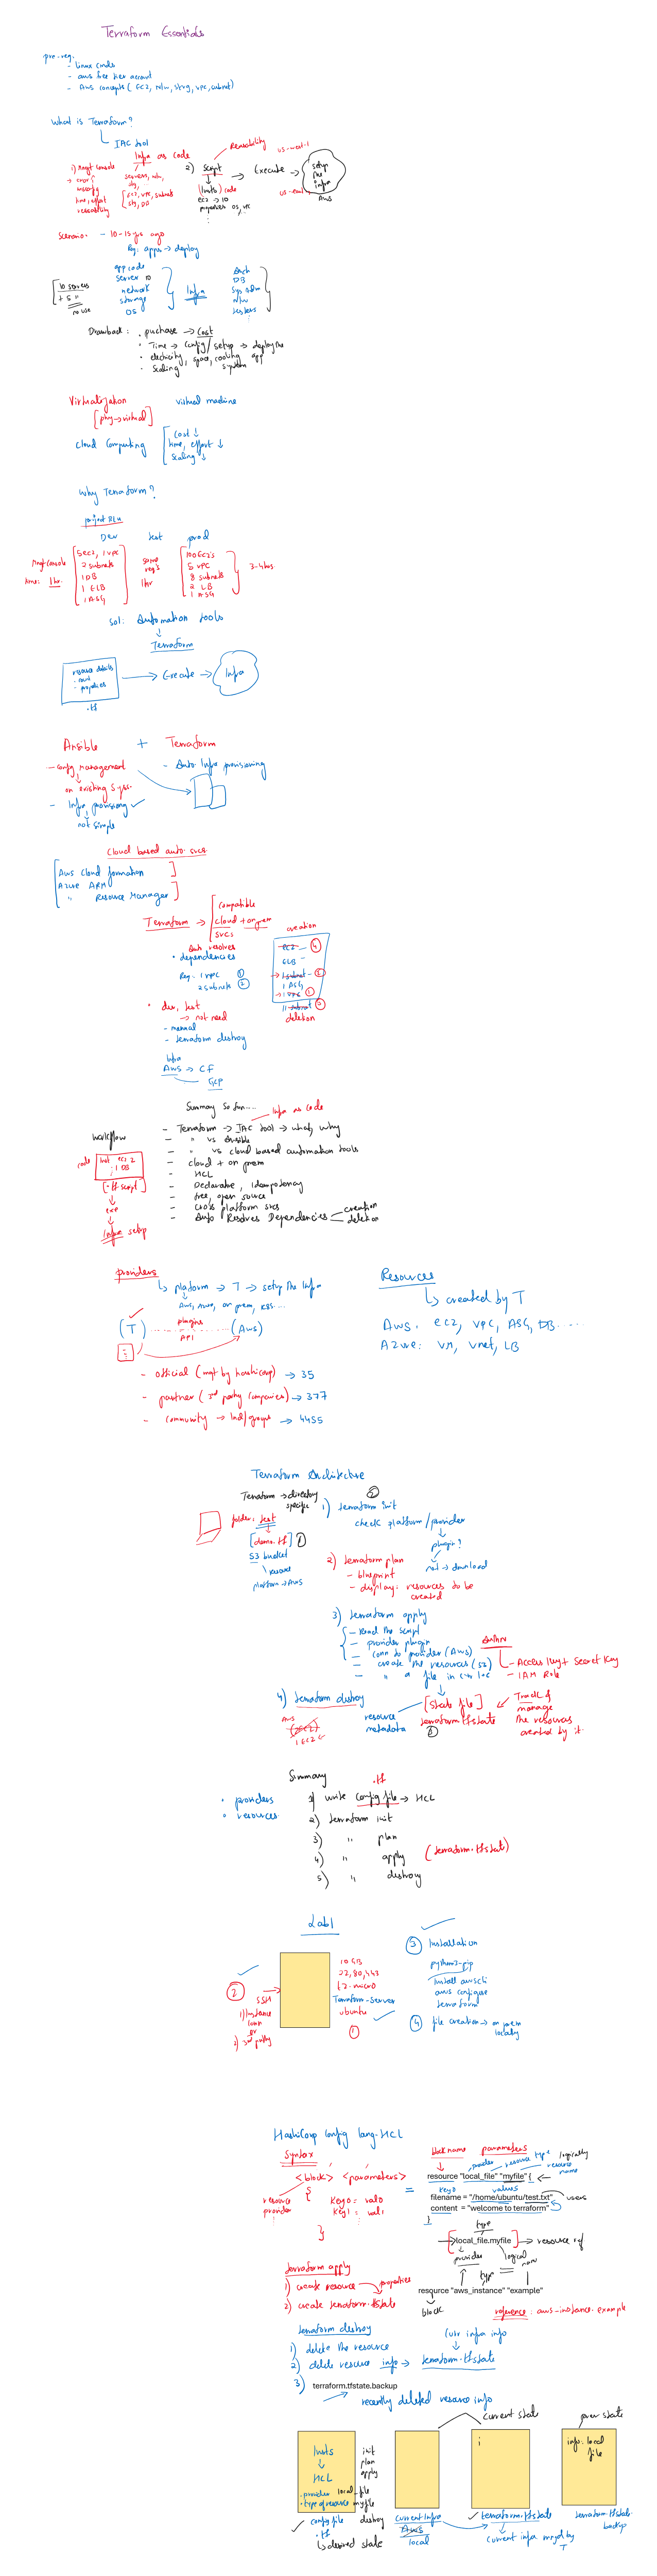 Terraform Essentials
pre-req.
- linux cmds
- aws free tier account
- Aws concepts ( EC2, n/w, strg, vpc, subnet)
What is Terraform?
IAC tool
Infra as code
1) Mngt console
→ error
misconfig
time, effort
reusability
servers, n/w,
stg, ...
EC2, vpc, subnets
stg, DB
2) script
Reusability
(insts) code
ec2 → 10
properties OS, vpc
→ Execute →
us-west-1
us-east
setup
the
infra
Aws
Scenario: - 10-15 yrs ago
Req: apps → deploy
10 servers
+ 5 "
no use
app code
server 10
network
storage
OS
Infra
Back
DB
Sys adm
N/w
testers
Drawback : . puchase → Cost
. Time → config/setup → deploy the app
. electricity, space, cooling system
. Scaling
Virtualization
[phy → virtual]
virtual machine
Cloud Computing
Cost ↓
time, effort ↓
Scaling ↓
Why Terraform?
project RLM
Dev
test
prod
Mngt console
time: 1hr.
5 ec2, 1 vpc
2 subnets
1 DB
1 ELB
1 ASG
same
req's
1hr
100 EC2's
5 VPC
8 subnets
2 LB
1 ASG
3-4hrs.
sol: Automation tools
Terraform
resource details
- properties
.tf
→ Execute →
Infra
Ansible + Terraform
- config management
on existing Syss.
- Infra provisiong ✓
not simple
- Auto Infra provisioning
Cloud based auto. svcs
Aws Cloud formation
Azure ARM
" Resource Manager
Terraform →
Compatible
cloud + on prem
svcs
Auto resolves
. dependencies
Req: 1 vpc ①
2 subnets ②
creation
EC2 - ④
ELB -
1 subnet - ③
1 ASG
1 VPC
11 subnet
deletion
. dev, test
→ not need
- manual
- terraform destroy
Infra
Aws → CF
GCP
Summary So far....
- Terraform → IAC tool → what, why
Infra as code
- " vs Ansible
- " vs cloud based automation tools
- cloud + on prem
- HCL
- Declarative, Idempotency
- free, open source
- cross platform svcs
- Auto Resolves Dependencies
creation
deletion
Workflow
code
inst ec2 2
1 DB
[.tf script]
exe
Infra setup
providers
↳ platform → T → setup the Infra
Aws, Azure, on prem, K8S....
(T) ......... (Aws)
plugins
API
- official (mgt by hashicorp) → 35
- partner (3rd party companies) → 377
- community → Ind/groups → 4455
Resources
↳ created by T
Aws: ec2, vpc, ASG, DB.....
Azure: VM, Vnet, LB
Terraform Architecture
Terraform → directory
specific
folder: test
[demo.tf] ①
S3 bucket
resource
platform → Aws
②
1) terraform init
check platform/provider
plugin?
not → download
2) terraform plan
- blueprint
- display: resources to be
created
3) terraform apply
- read the script
- provider plugin
- conn to provider (Aws)
- create the resources (s3)
- " a file in curr loc
Authn
- Access key + Secret Key
- IAM Role
[State file]
terraform.tfstate
③
resource
metadata
Track &
manage
the resources
created by it.
4) terraform destroy
Aws
1 EC2
Summary
. providers
. resources
.tf
1) write Config file → HCL
2) terraform init
3) " plan
4) " apply
(terraform.tfstate)
5) " destroy
Lab1
②
SSH
1) Instance
conn
or
2) 3rd party
10 GB
22,80,443
t2.micro
Terraform-Server
ubuntu
①
③ Installation
python3-pip
install awscli
aws configure
terraform
④ file creation → on prem
locally
HashiCorp config lang-HCL
Syntax
<block> <parameters>
{
key0 = val0
key1 = val1
}
resource
provider
=
block name
parameters
provider
resource type
logically
resource
name
resource "local_file" "myfile" {
key0
values
filename = "/home/ubuntu/test.txt"
users
content = "welcome to terraform"
}
type
local_file.myfile
→ resource ref
provider
logical
name
type
resource "aws_instance" "example"
block
reference: aws-instance.example
terraform apply
1) create resource
properties
2) create terraform.tfstate
terraform destroy
1) delete the resource
2) delete resource info → terraform.tfstate
curr infra info
3) terraform.tfstate.backup
recently deleted resource info
current state
prev state
Insts
HCL
. provider
. type of resource
init
plan
apply
local-file
myfile
destroy
config file
.tf
↳ desired state
current Infra
Aws
local
i
terraform.tfstate
current infra mngd by
T
info: local
file
terraform.tfstate.
backup